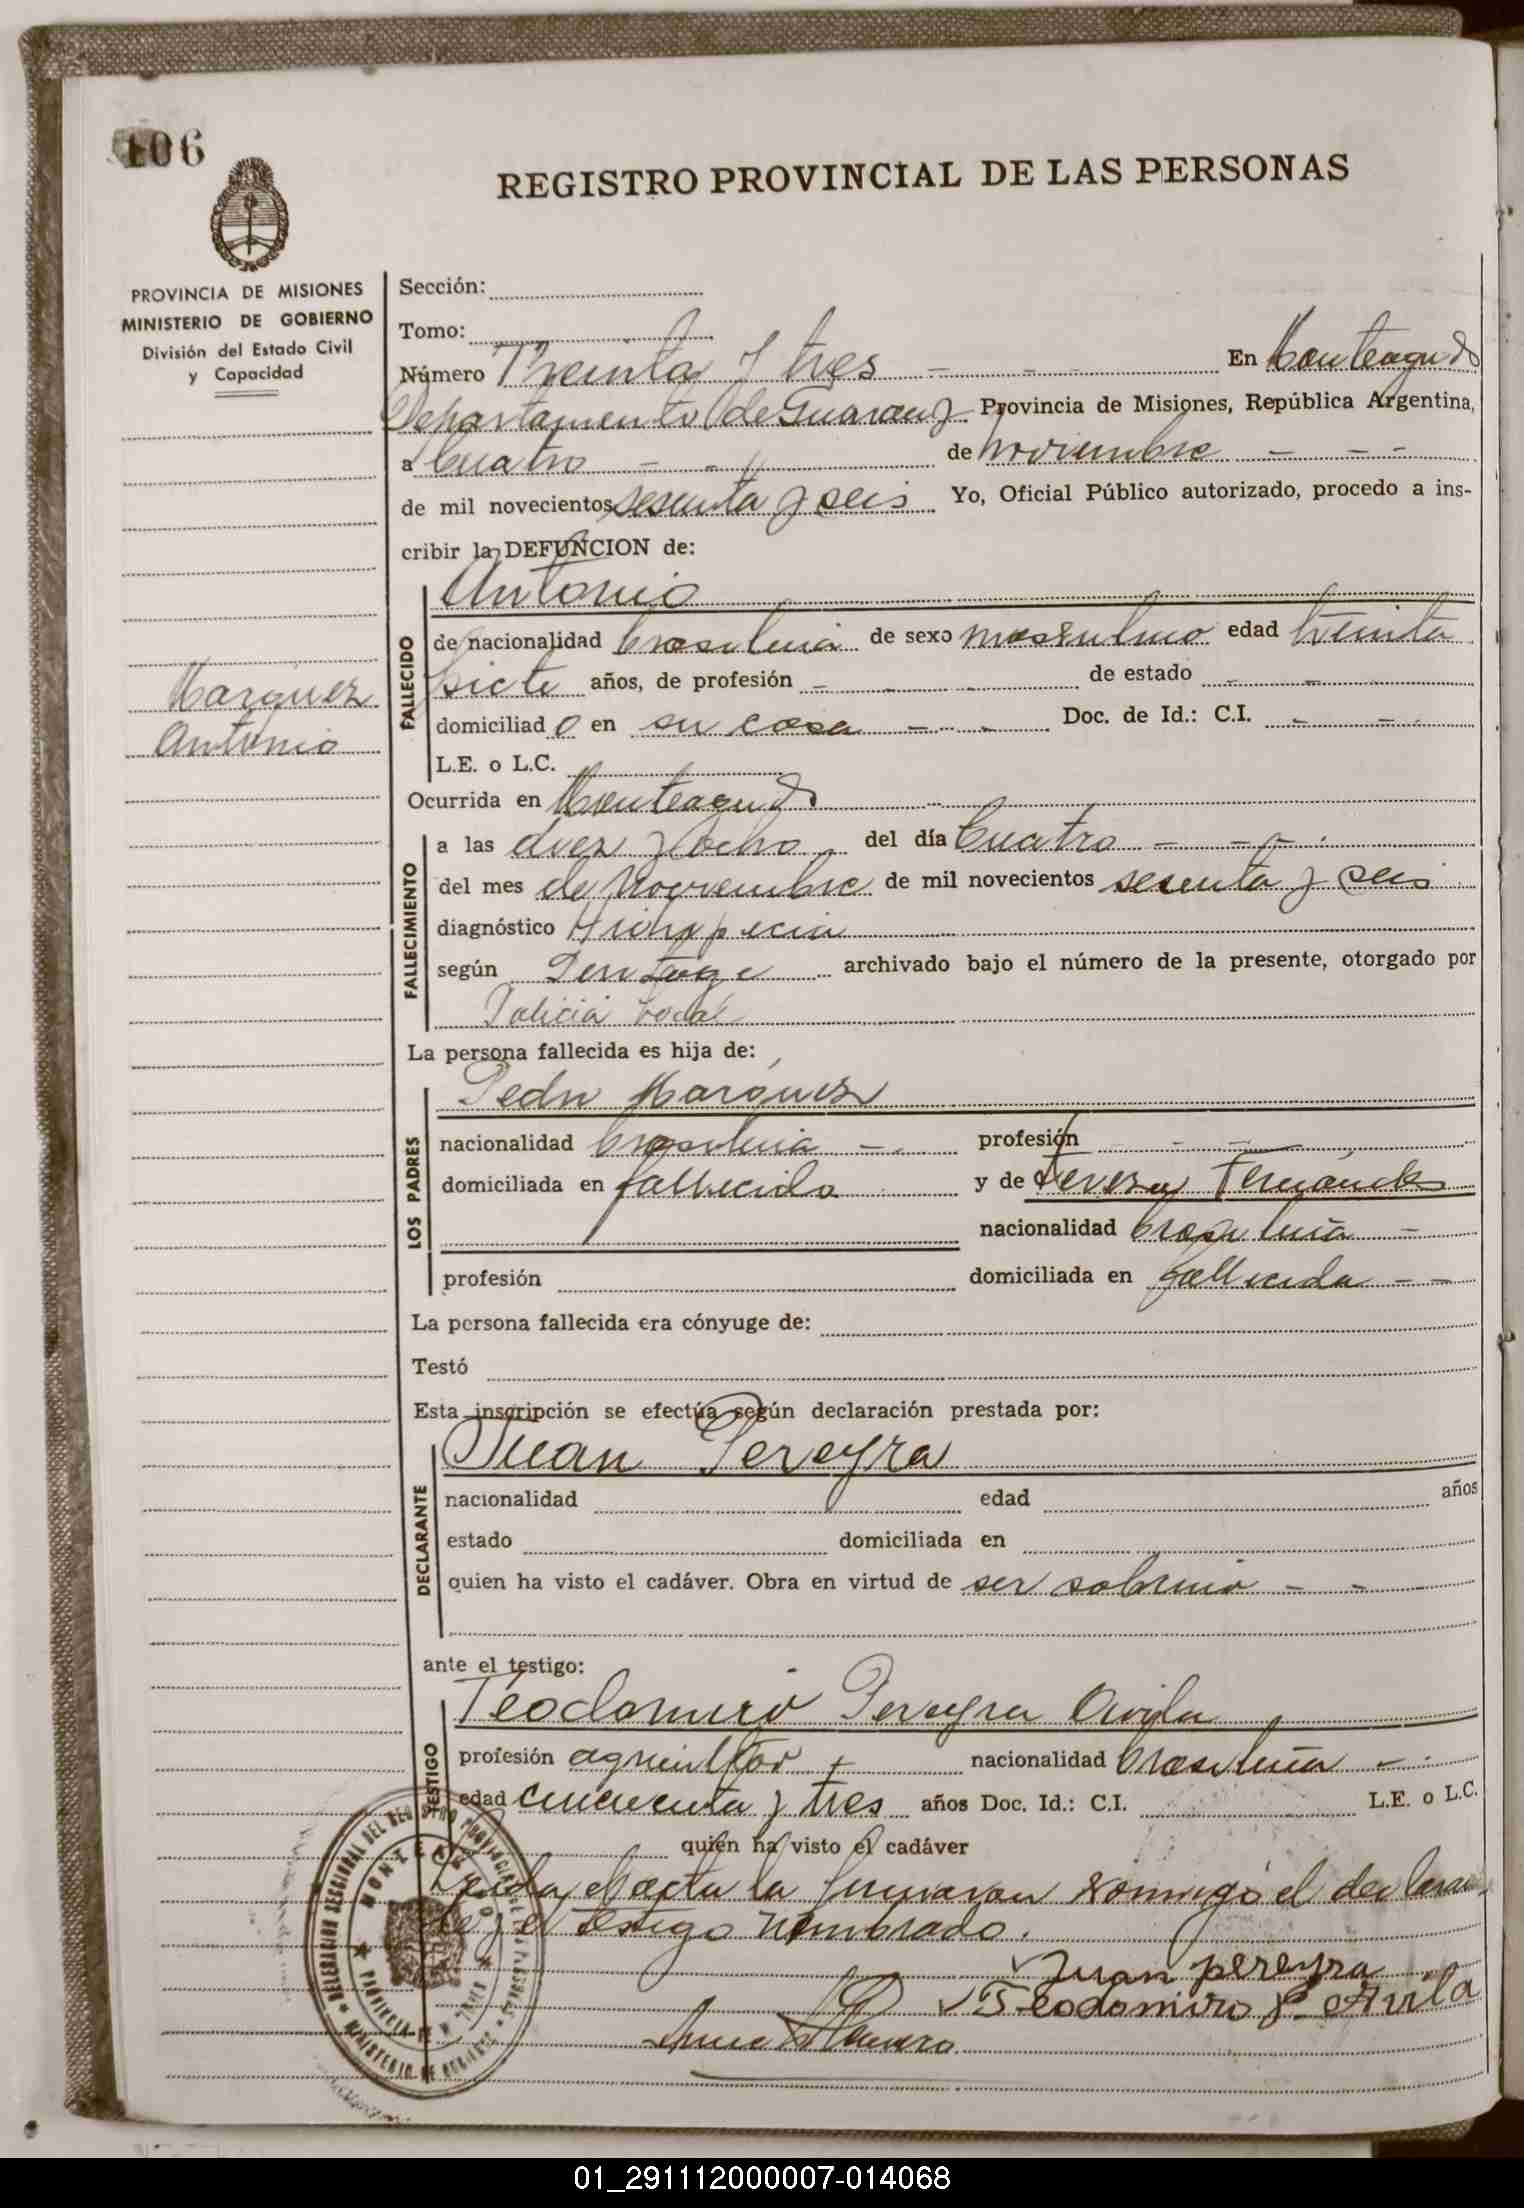 106
REGISTRO PROVINCIAL DE LAS PERSONAS
PROVINCIA DE MISIONES
MINISTERIO DE GOBIERNO
División del Estado Civil
y Capacidad
Sección:
Tomo:
Número Treinta y tres - - - En Monteagudo
Departamento de Guarany Provincia de Misiones, República Argentina,
a Cuatro - - de noviembre - - -
de mil novecientos sesenta y seis Yo, Oficial Público autorizado, procedo a ins-
cribir la DEFUNCION de:
Marquez
Antonio
FALLECIDO
Antonio
de nacionalidad brasileña de sexo masculino edad treinta
siete años, de profesión - de estado - -
domiciliado en su casa - - Doc. de Id.: C.I. - -
L.E. o L.C.
Ocurrida en Monteagudo
FALLECIMIENTO
a las diez y ocho del día Cuatro - - -
del mes de Noviembre de mil novecientos sesenta y seis
diagnóstico Hidropecia
según archivado bajo el número de la presente, otorgado por
Policia local
La persona fallecida es hija de:
LOS PADRES
Pedro Marquez
nacionalidad brasileña - profesión - -
domiciliada en fallecido y de Tereza Fernández
nacionalidad brasileña -
profesión domiciliada en fallecida - -
La persona fallecida era cónyuge de:
Testó
Esta inscripción se efectúa según declaración prestada por:
DECLARANTE
Juan Pereyra
nacionalidad edad años
estado domiciliada en
quien ha visto el cadáver. Obra en virtud de ser sobrino - -
ante el testigo:
TESTIGO
Teodomiro Pereyra Avila
profesión agricultor nacionalidad brasileña -
edad cincuenta y tres años Doc. Id.: C.I. L.E. o L.C.
quien ha visto el cadáver
Leida el acta la firmaron conmigo el declaran-
te y el testigo nombrado.
Juan pereyra
Teodomiro P. Avila
DELEGACION SECCIONAL DEL REGISTRO PROVINCIAL DE LAS PERSONAS
MONTEAGUDO
PROVINCIA DE MISIONES
MINISTERIO DE GOBIERNO
01_291112000007-014068